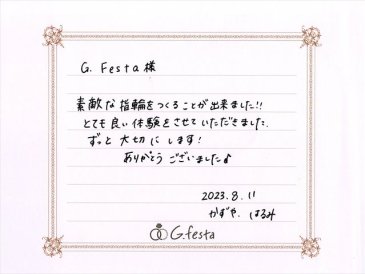 G. Festa 様
素敵な指輪をつくることが出来ました!!
とても良い体験をさせていただきました.
ずっと大切にします!
ありがとうございました♪
2023.8.11
かずや. はるみ
G.festa